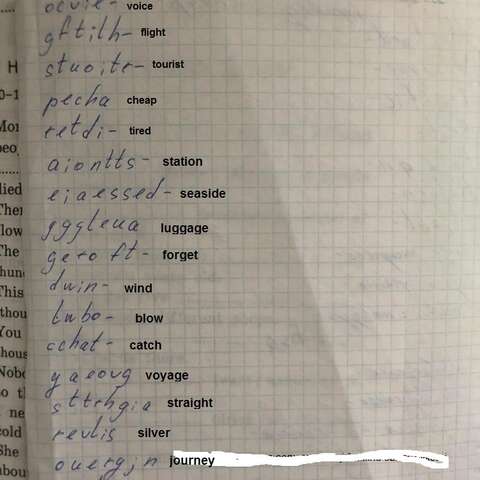 ocvie - voice
gftilh - flight
stuoitr - tourist
pecha cheap
retdi - tired
aiontts - station
eiaessed - seaside
gggleua luggage
gero ft - forget
dwin - wind
lwbo - blow
cchat - catch
yaeovg voyage
sttrhgia straight
revlis silver
ouergjn journey